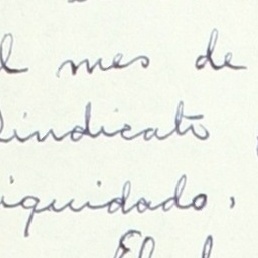 l mes de
Sindicato
iquidado,
El